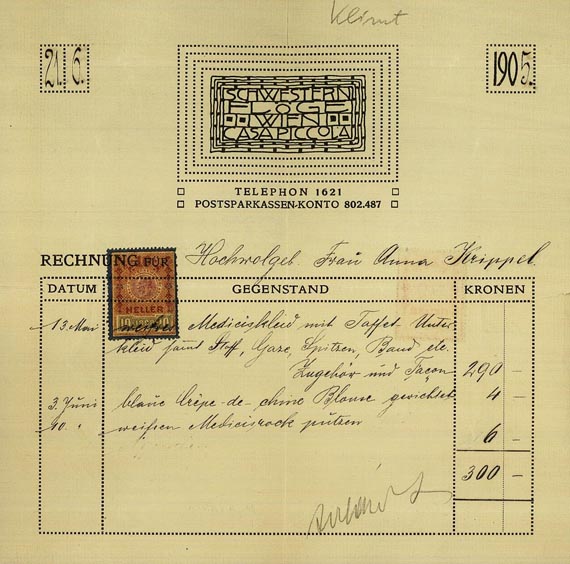 Klimt
21. 6.
1905.
SCHWESTERN
FLÖGE
WIEN
CASA PICCOLA
TELEPHON 1621
POSTSPARKASSEN-KONTO 802.487
RECHNUNG FÜR Hochwolgeb. Frau Anna Krippel
DATUM GEGENSTAND KRONEN
HELLER
10 10
13. Mai weißes Mediciskleid mit Taffet Unter
kleid samt Stoff, Gaze, Spitzen, Band, etc.
Zugehör und Façon 290 –
3. Juni blaue Crêpe-de-chine Blouse gerichtet 4 –
20. " weißen Medicisrock putzen 6 –
300 –